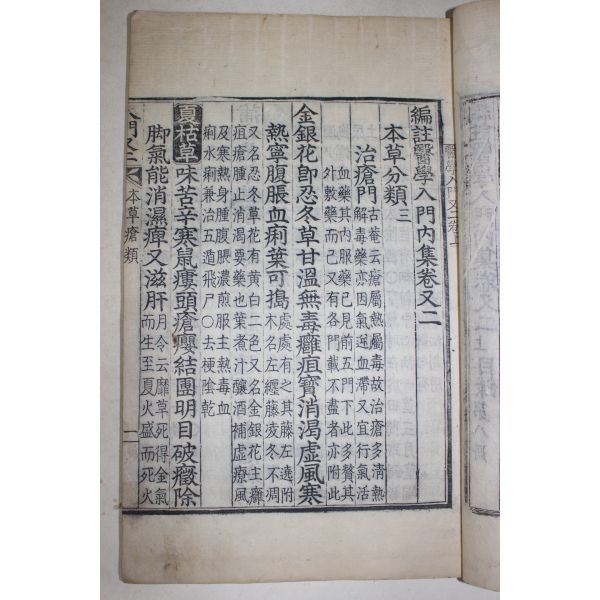 編註醫學入門內集卷又二
本草分類三
治瘡門 古菴云瘡屬熱屬毒故治瘡多淸熱
解毒藥亦因氣逆血滯又宜行氣活
血藥其內服藥已見前五門下此多贅其
外敷藥而已又有各門載不盡者亦附此
金銀花卽忍冬草甘溫無毒癰疽寶消渴虛風寒
熱寧腹脹血痢葉可搗 處處有之其藤左遶附
木名左纏藤凌冬不凋
又名忍冬草花有黃白二色又名金銀花主癰
疽瘡腫止消渴要藥也葉煮汁釀酒補虛療風
及寒熱身腫腹脹濃煎服主熱毒血
痢水痢兼治五遁飛尸○去梗陰乾
夏枯草味苦辛寒鼠瘻頭瘡癭結團明目破癥除
脚氣能消濕痺又滋肝 月令云靡草死得金氣
而生至夏火盛而死火
入門又二
本草瘡類
一